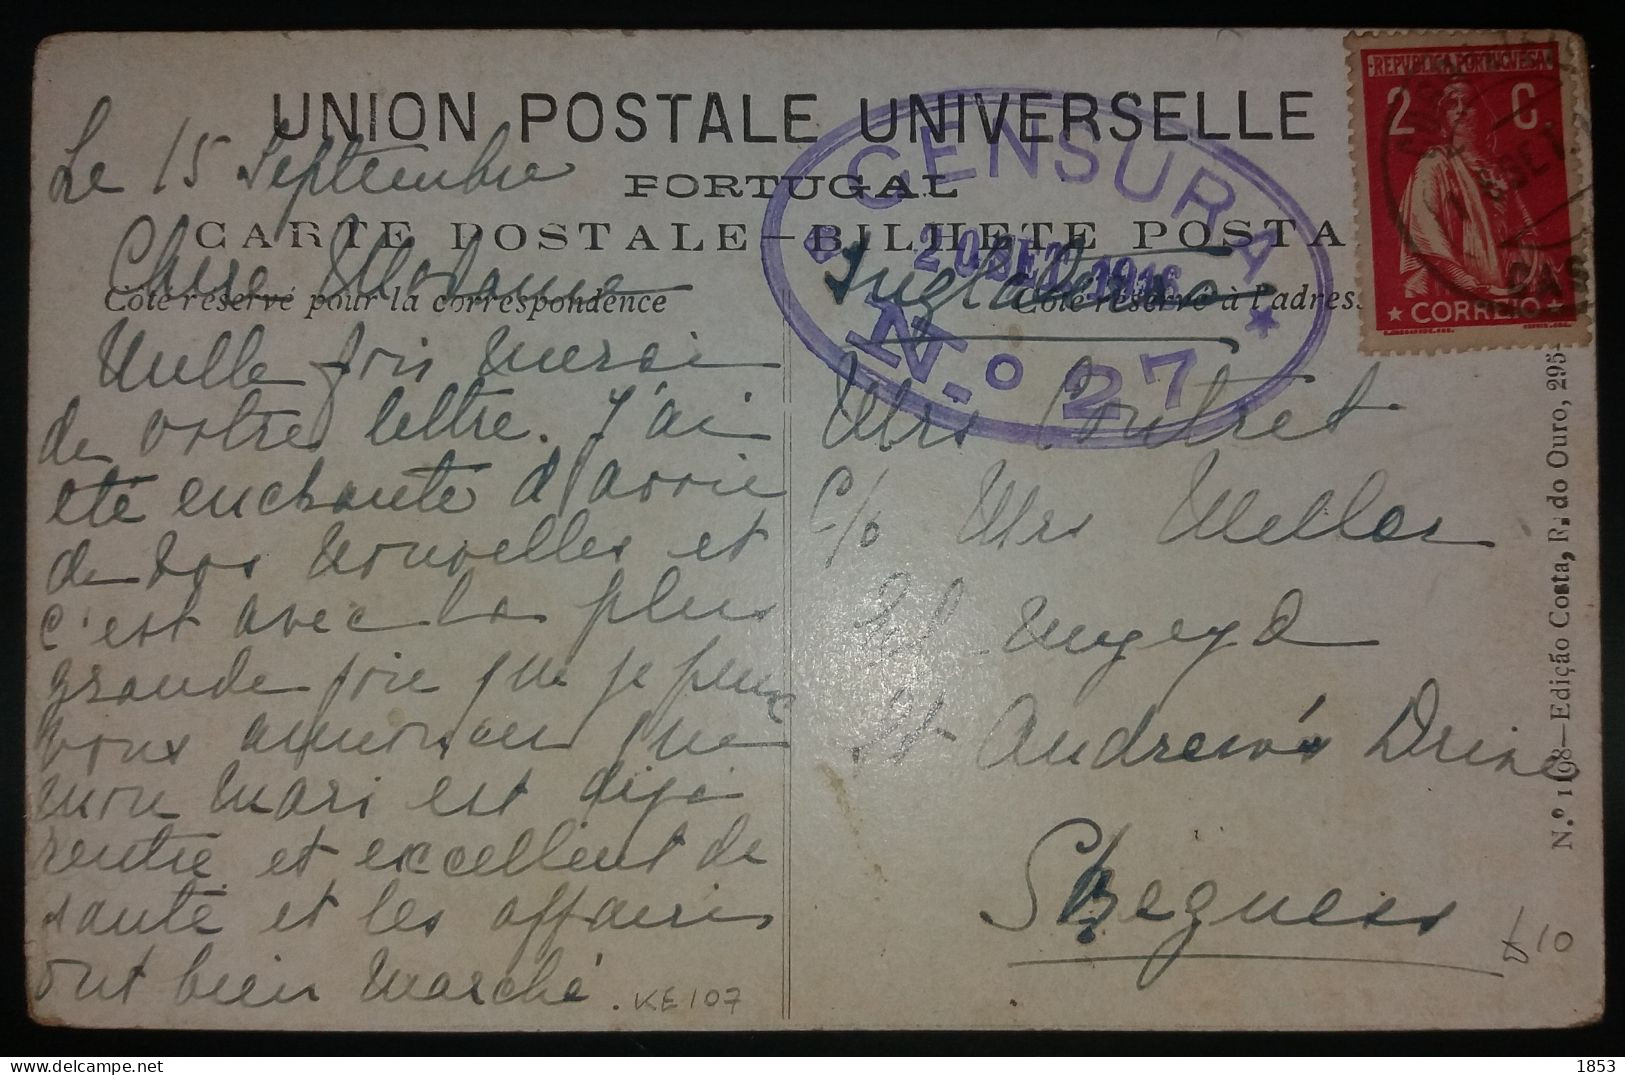 UNION POSTALE UNIVERSELLE
PORTUGAL
CARTE POSTALE—BILHETE POSTA
Coté réservé pour la correspondence
Coté réservé à l'adress
Le 15 Septembre
Chère Madame
Mille fois merci
de votre lettre. J'ai
été enchanté d'avoir
de vos nouvelles et
c'est avec la plus
grande joie que je peux
vous annoncer que
mon mari est déjà
rentré et excellent de
santé et les affaires
ont bien marché.
KE107
CENSURA
20 SET. 1916
N.º 27
Inglaterra
Mrs Coutret
c/o Mrs Mellor
St Andrew's Drive
Skegness
REPUBLICA PORTUGUESA
2 C
CORREIO
SET
CAS
N.º 198—Edição Costa, R. do Ouro, 295
10
1853